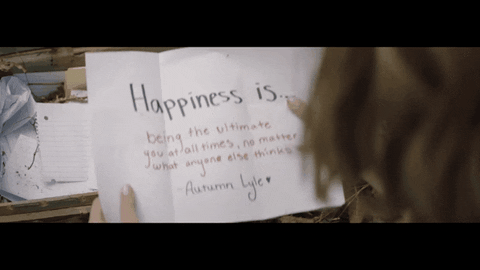 Happiness is...
being the ultimate
you at all times, no matter
what anyone else thinks
-Autumn Lyle♥